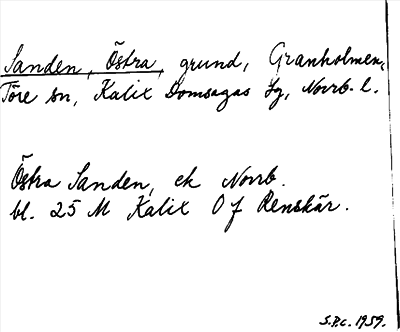 Sanden, Östra, grund, Granholmen,
Töre sn, Kalix Domsagas Lg, Norrb. l.
Östra Sanden, ek Norrb.
bl. 25 M Kalix O f Renskär.
S.P.c. 1959.